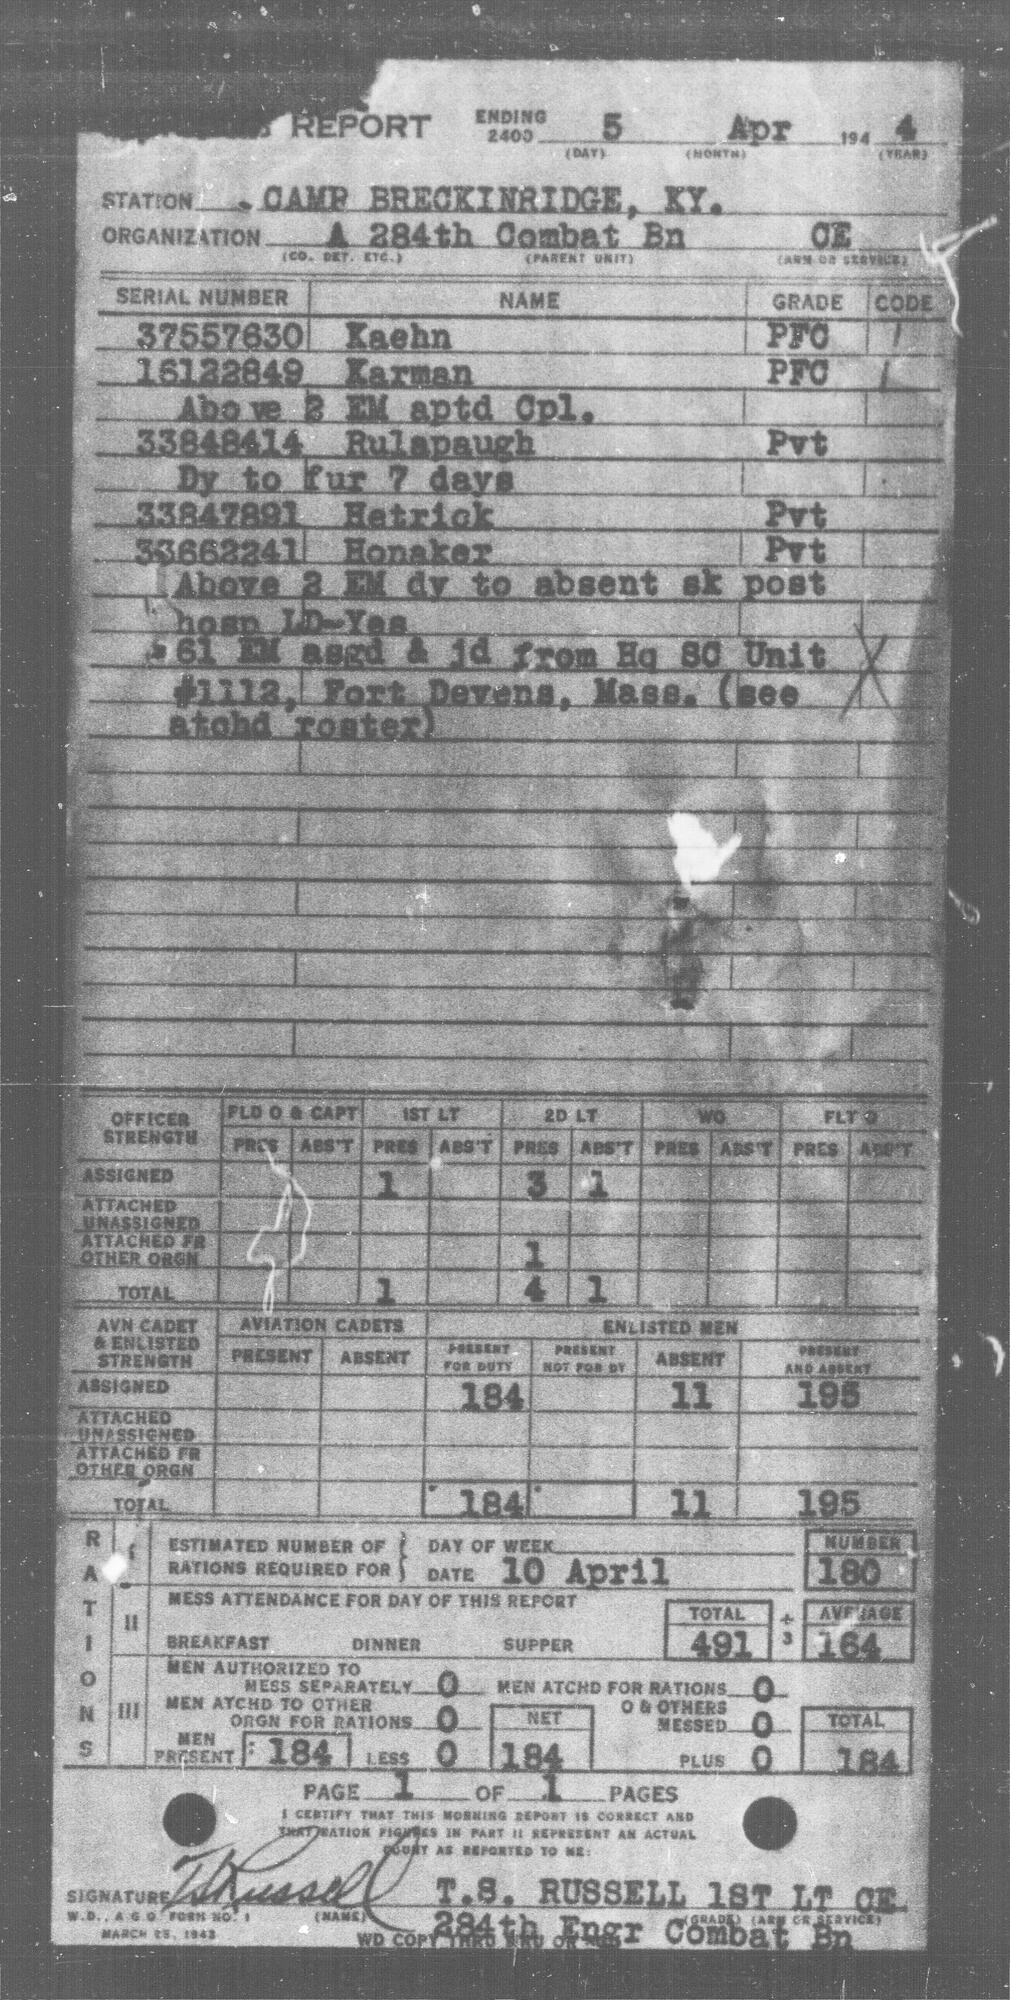 REPORT ENDING 2400 5 (DAY) Apr (MONTH) 194 4 (YEAR)
STATION CAMP BRECKINRIDGE, KY.
ORGANIZATION A 284th Combat Bn CE
(CO. DET. ETC.) (PARENT UNIT) (ARM OR SERVICE)
SERIAL NUMBER NAME GRADE CODE
37557630 Kaehn PFC /
16122849 Karman PFC /
Above 2 EM aptd Cpl.
33848414 Rulapaugh Pvt
Dy to fur 7 days
33847891 Hetrick Pvt
33662241 Honaker Pvt
Above 2 EM dy to absent sk post
hosp LD-Yes
61 EM asgd & jd from Hq SC Unit
#1112, Fort Devens, Mass. (see
atchd roster)
OFFICER STRENGTH FLD O & CAPT 1ST LT 2D LT WO FLT O
PRES ABS'T PRES ABS'T PRES ABS'T PRES ABS'T PRES ABS'T
ASSIGNED 1 3 1
ATTACHED UNASSIGNED
ATTACHED FR OTHER ORGN 1
TOTAL 1 4 1
AVN CADET & ENLISTED STRENGTH AVIATION CADETS ENLISTED MEN
PRESENT ABSENT PRESENT FOR DUTY PRESENT NOT FOR DY ABSENT PRESENT AND ABSENT
ASSIGNED 184 11 195
ATTACHED UNASSIGNED
ATTACHED FR OTHER ORGN
TOTAL 184 11 195
RATIONS
I ESTIMATED NUMBER OF RATIONS REQUIRED FOR DAY OF WEEK DATE 10 April NUMBER 180
II MESS ATTENDANCE FOR DAY OF THIS REPORT
BREAKFAST DINNER SUPPER TOTAL 491 ÷ 3 AVERAGE 164
III MEN AUTHORIZED TO MESS SEPARATELY 0 MEN ATCHD FOR RATIONS 0
MEN ATCHD TO OTHER ORGN FOR RATIONS 0 NET O & OTHERS MESSED 0 TOTAL
MEN PRESENT 184 LESS 0 184 PLUS 0 184
PAGE 1 OF 1 PAGES
I CERTIFY THAT THIS MORNING REPORT IS CORRECT AND
THAT RATION FIGURES IN PART II REPRESENT AN ACTUAL
COUNT AS REPORTED TO ME:
SIGNATURE TS Russell T.S. RUSSELL 1ST LT CE
W.D., A.G.O. FORM NO. 1 (NAME) (GRADE) (ARM OR SERVICE)
MARCH 25, 1943 284th Engr Combat Bn
WD COPY THRU MRU OR